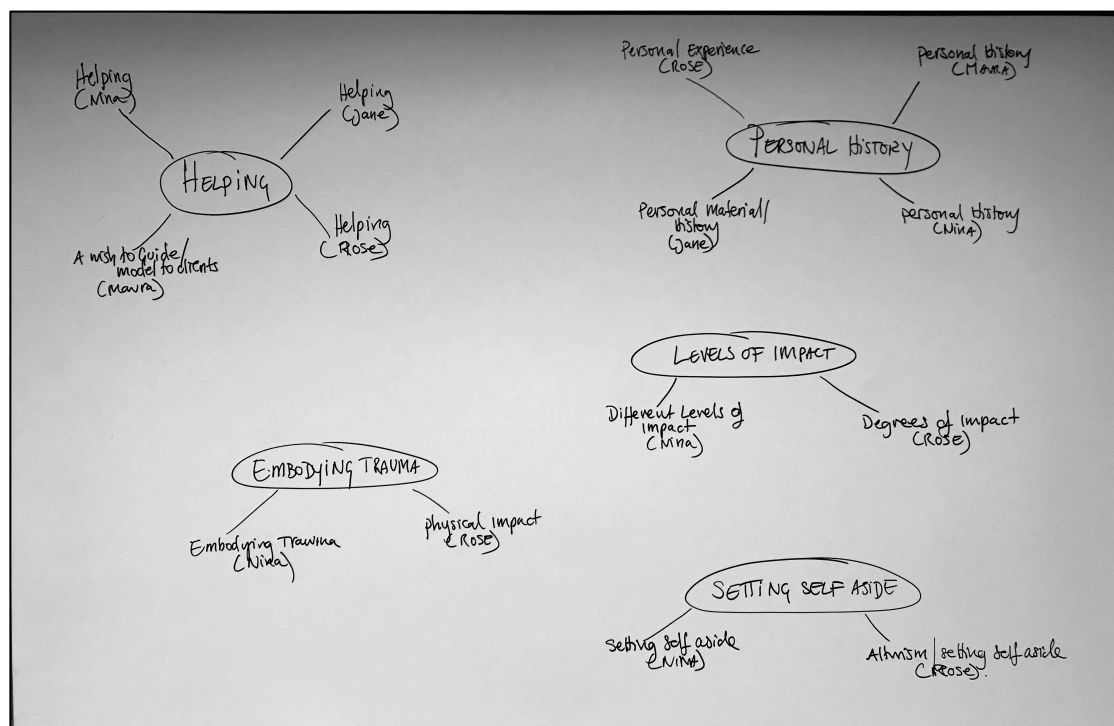 Helping
(Nina)
Helping
(Jane)
HELPING
Helping
(Rose)
A wish to Guide/
model to clients
(Maura)
Personal Experience
(ROSE)
personal History
(MAURA)
PERSONAL HISTORY
Personal Material/
History
(Jane)
personal History
(NINA)
LEVELS OF IMPACT
Different Levels of
Impact
(Nina)
Degrees of Impact
(ROSE)
EMBODYING TRAUMA
Embodying Trauma
(Nina)
physical Impact
(ROSE)
SETTING SELF ASIDE
Setting Self aside
(NINA)
Altruism/setting self aside
(Rose).